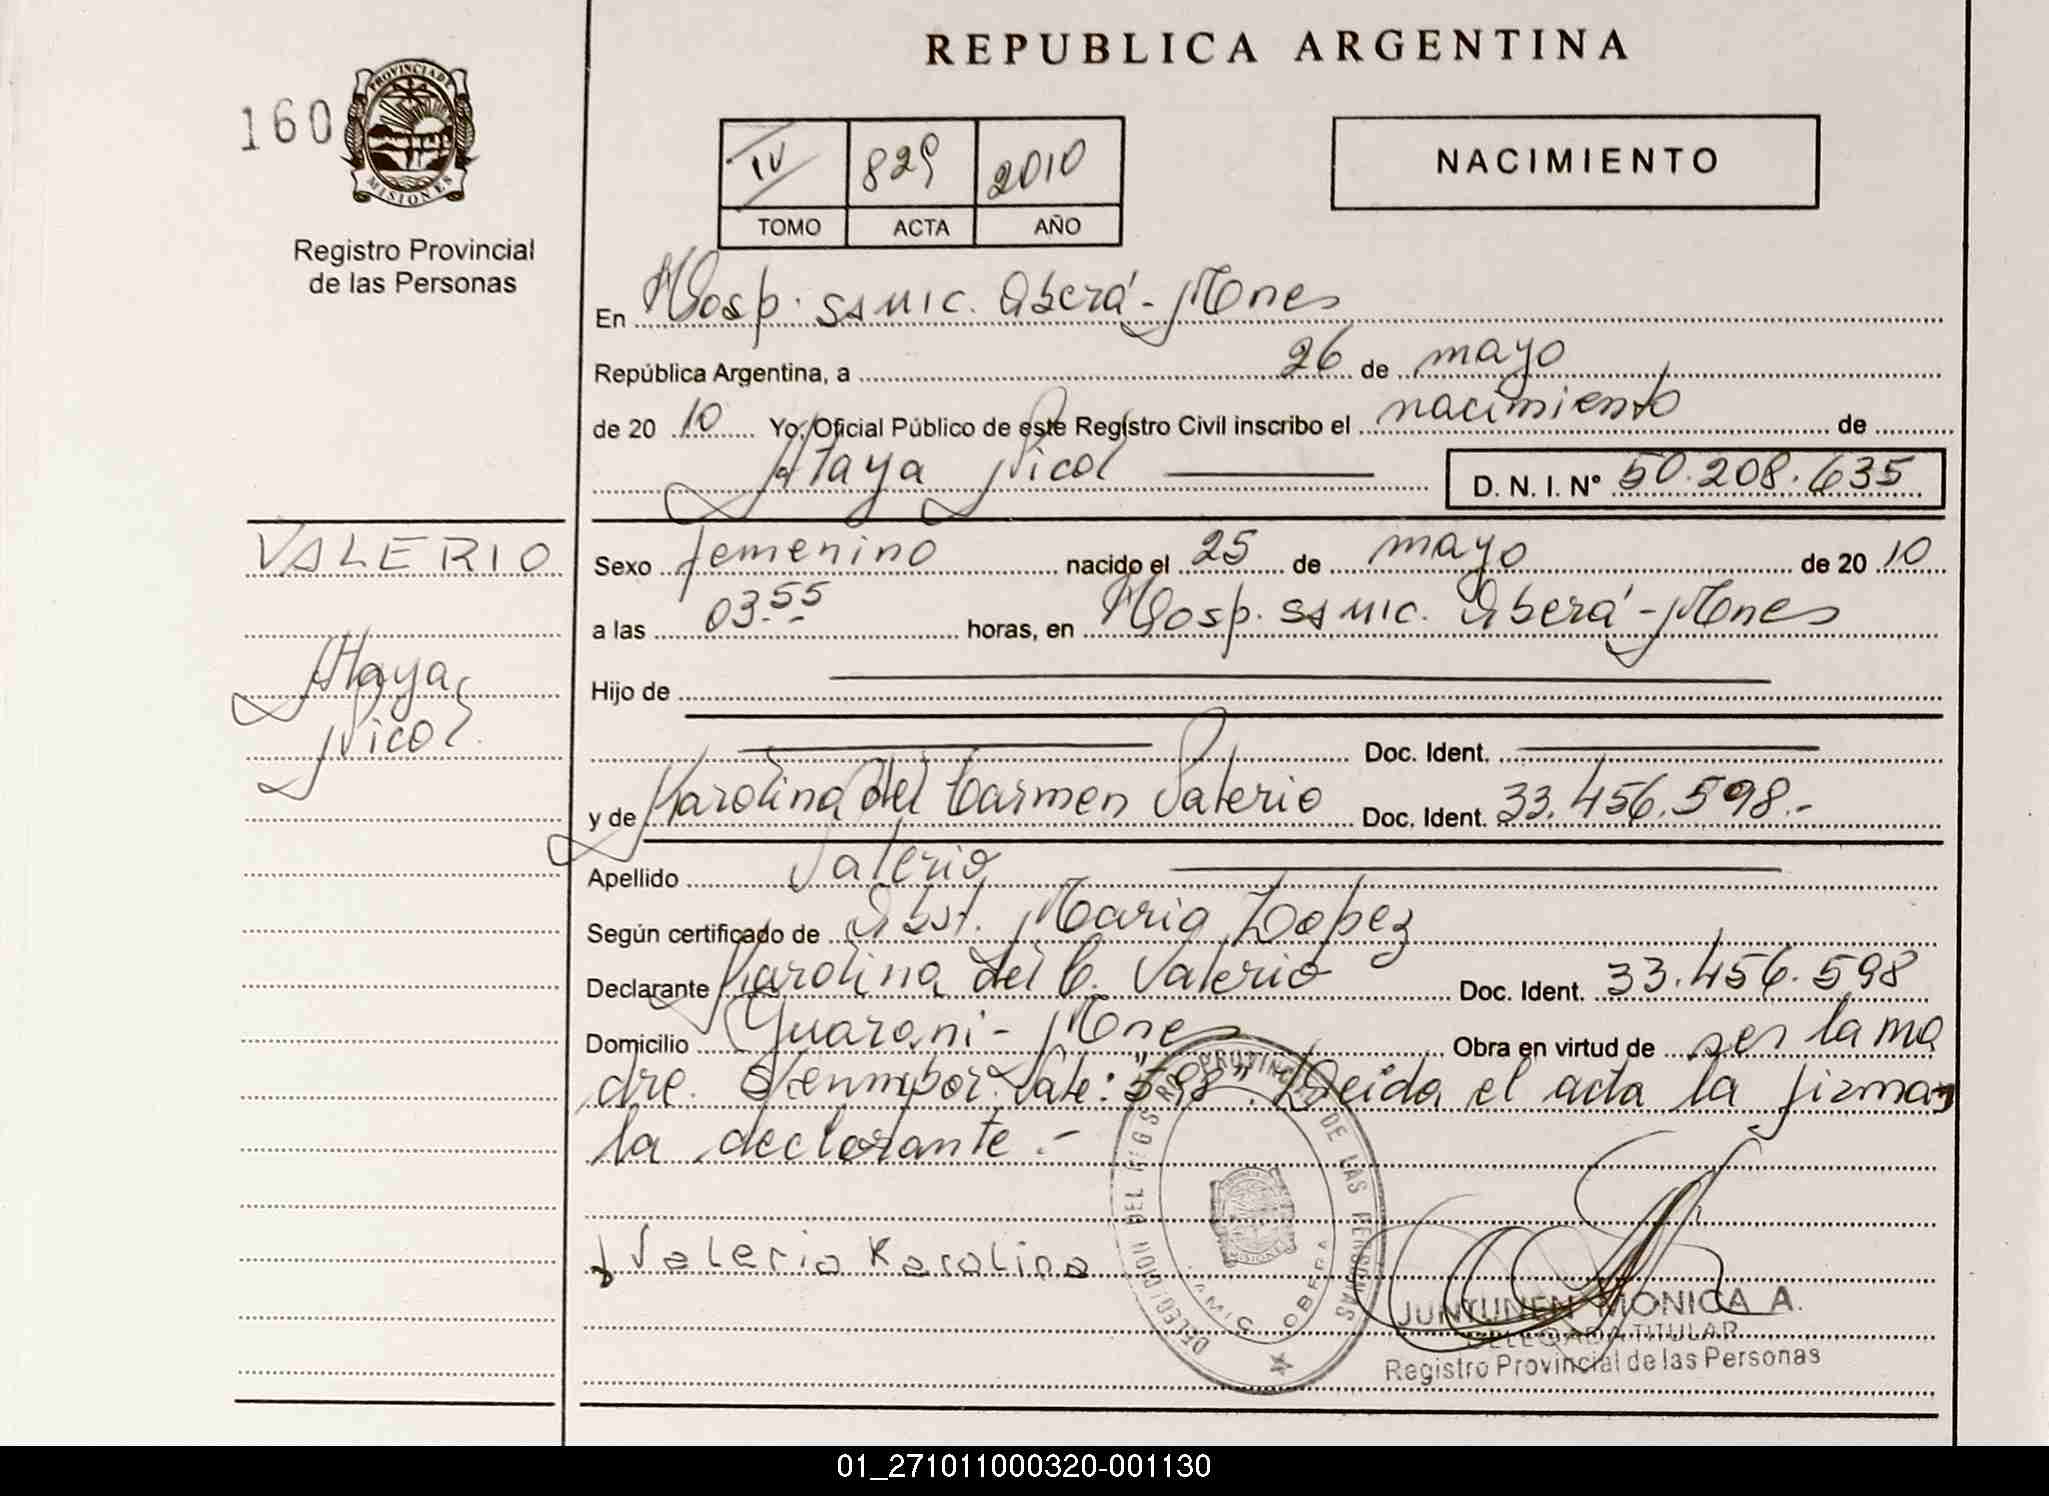 REPUBLICA ARGENTINA
160
PROVINCIA DE
MISIONES
Registro Provincial
de las Personas
IV 829 2010
TOMO ACTA AÑO
NACIMIENTO
En Hosp. SSMIC. Oberá - Mnes
República Argentina, a 26 de mayo
de 20 10 Yo, Oficial Público de este Registro Civil inscribo el nacimiento de
Ataya Nicol D. N. I. N° 50.208.635
VALERIO
Ataya
Nicol.
Sexo femenino nacido el 25 de mayo de 20 10
a las 03.55 horas, en Hosp. SSMIC. Oberá - Mnes
Hijo de
Doc. Ident.
y de Karolina del Carmen Valerio Doc. Ident. 33.456.598.-
Apellido Valerio
Según certificado de Obst. Maria Lopez
Declarante Karolina del C. Valerio Doc. Ident. 33.456.598
Domicilio Guarani - Mnes Obra en virtud de ser la ma
dre. Vale: "598". Leida el acta la firma
la declarante.-
Valerio Karolina
DELEGACION DEL REGISTRO PROVINCIAL DE LAS PERSONAS
MISIONES
OBERA
JUNTUNEN MONICA A.
DELEGADA TITULAR
Registro Provincial de las Personas
01_271011000320-001130